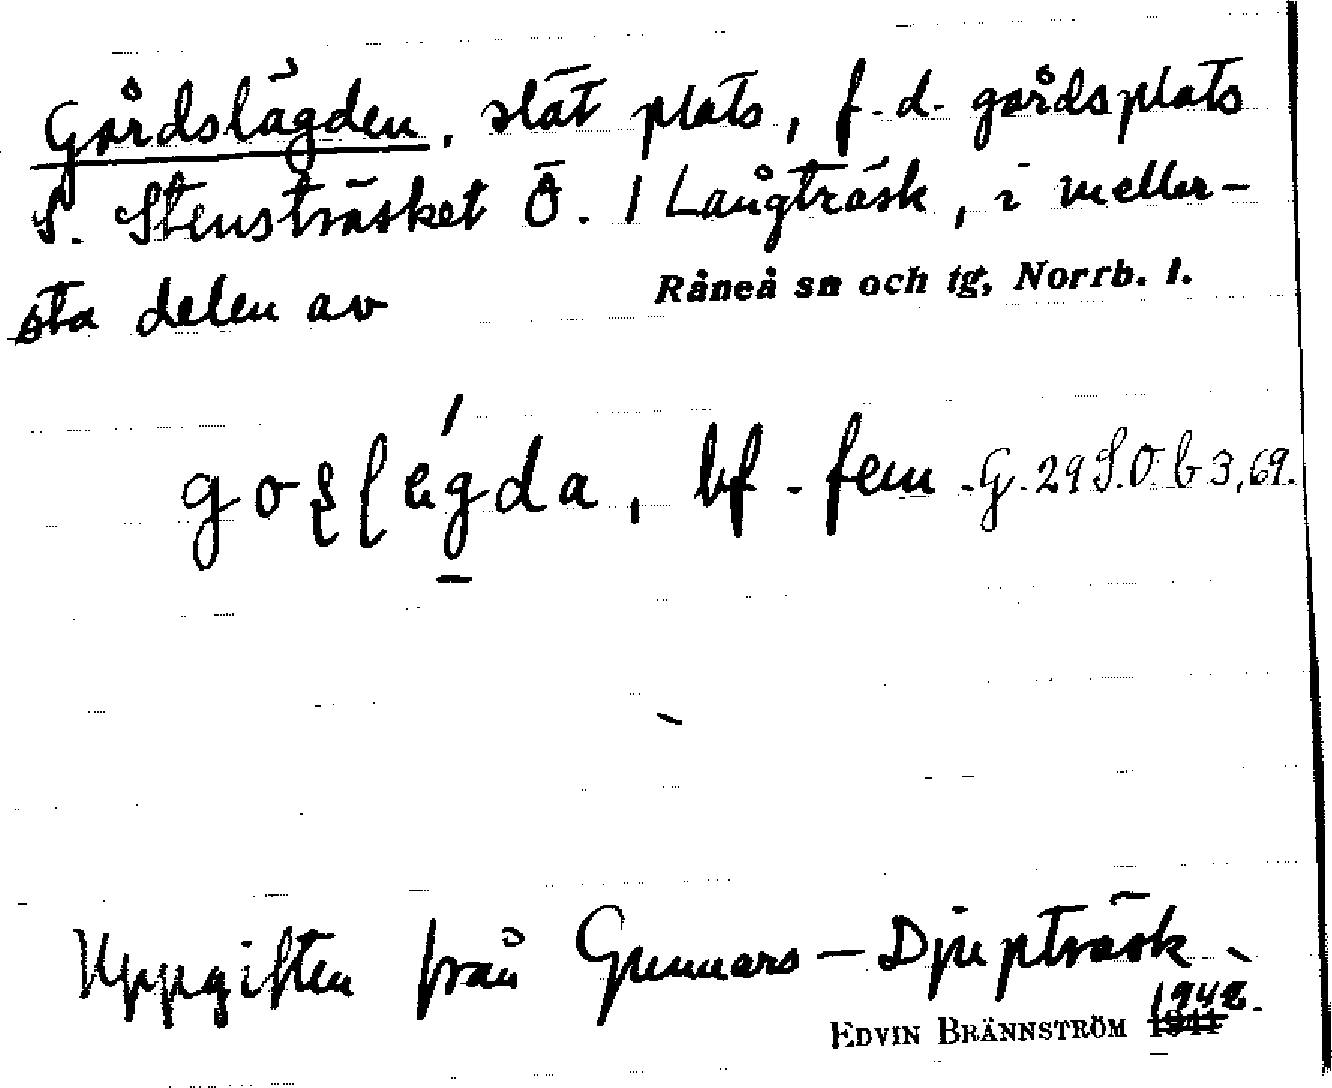 Gårdslägden, slät plats, f. d. gårdsplats
S. Stensträsket Ö. / Långträsk, i meller-
sta delen av Råneå sn och tg, Norrb. l.
bf. fem. G. 29 S.O b 3,69.
Uppgiften från Gunnars-Djupträsk
1942.
EDVIN BRÄNNSTRÖM 1941